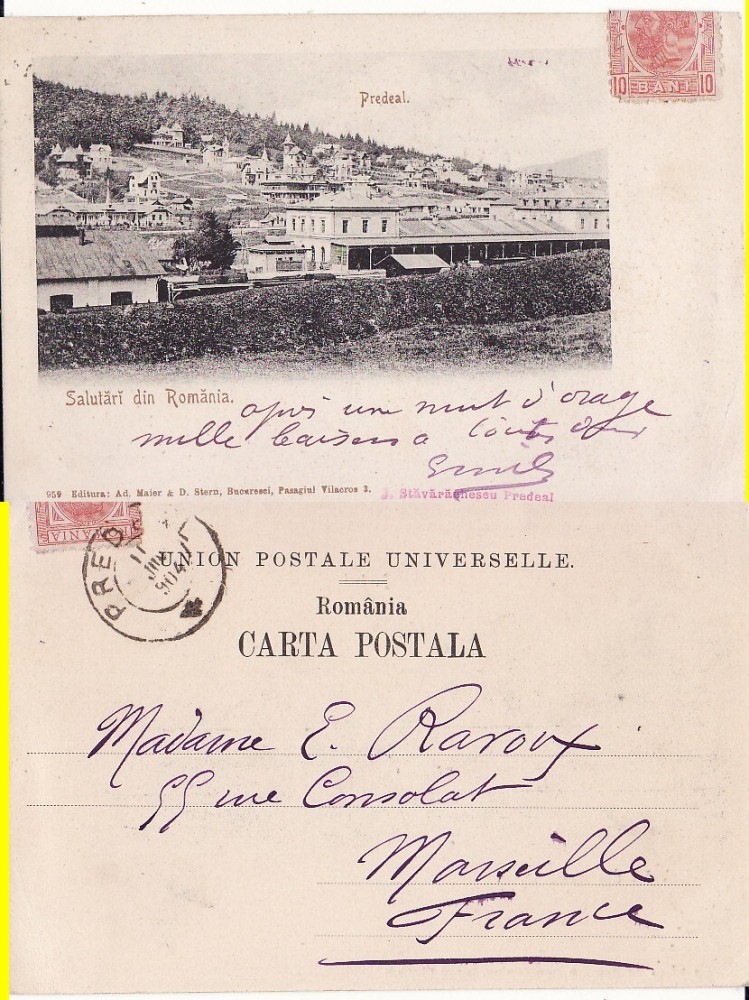 10 BANI 10
Predeal.
Salutări din România.
après une nuit d'orage
mille baisers à toutes deux
Emile
959 Editura: Ad. Maier & D. Stern, Bucuresci, Pasagiul Vilacros 3.
J. Stăvărăchescu Predeal
MANIA
PRED
11 JUN 904
UNION POSTALE UNIVERSELLE.
România
CARTA POSTALA
Madame E. Ravoux
55 rue Consolat
Marseille
France